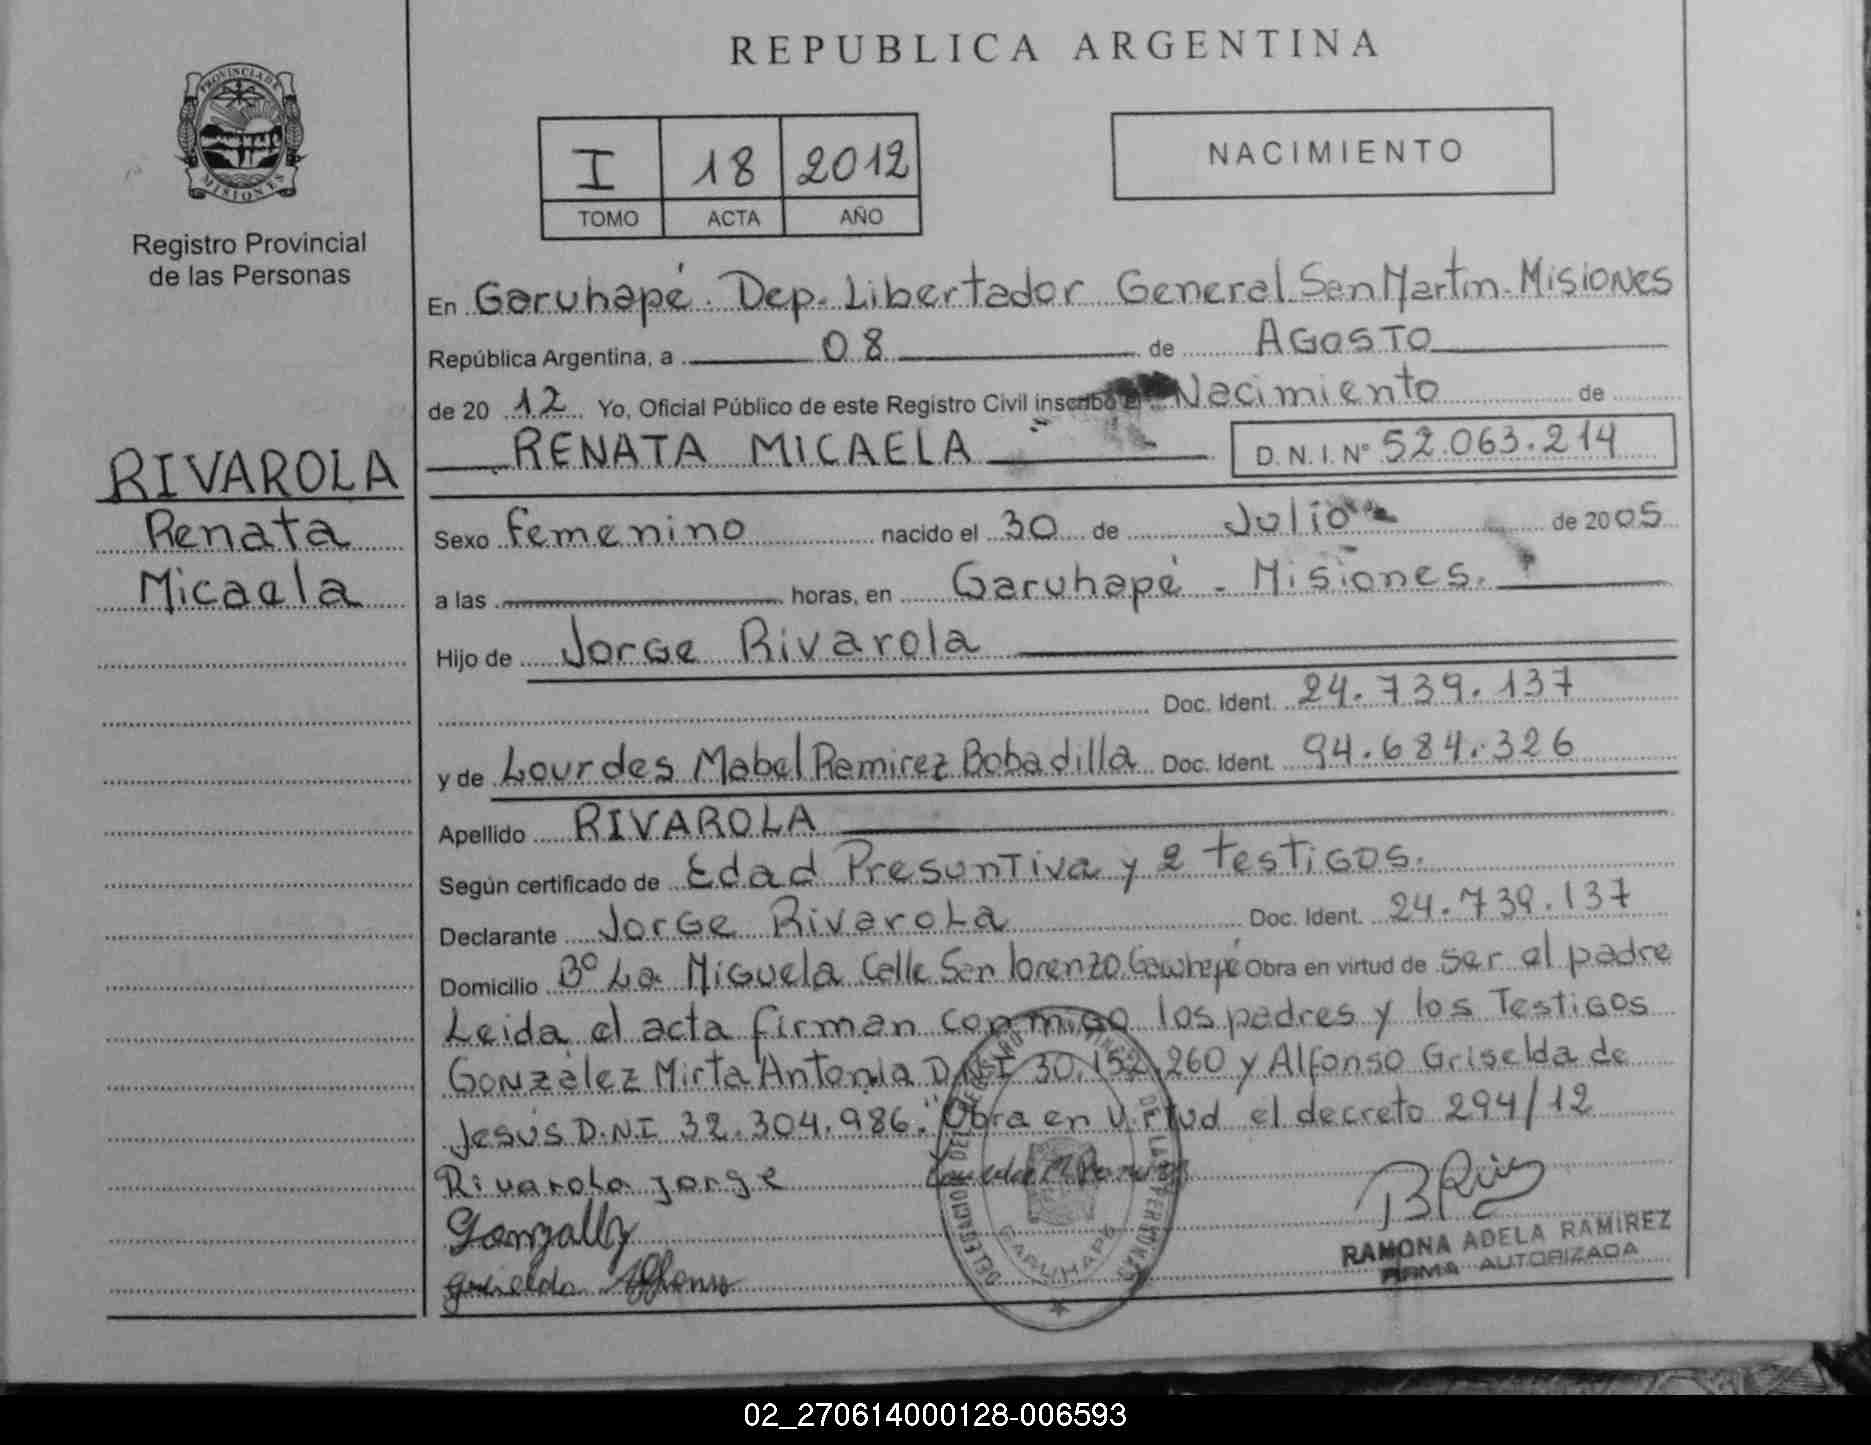 REPUBLICA ARGENTINA
PROVINCIA DE MISIONES
Registro Provincial
de las Personas
I 18 2012
TOMO ACTA AÑO
NACIMIENTO
En Garuhapé. Dep. Libertador General San Martin. Misiones
República Argentina, a 08 de AGOSTO
de 2012 Yo, Oficial Público de este Registro Civil inscribo el Nacimiento de
RENATA MICAELA D.N.I. Nº 52.063.214
RIVAROLA
Renata
Micaela
Sexo Femenino nacido el 30 de Julio de 2005
a las horas, en Garuhapé - Misiones.
Hijo de Jorge Rivarola
Doc. Ident. 24.739.137
y de Lourdes Mabel Ramirez Bobadilla Doc. Ident. 94.684.326
Apellido RIVAROLA
Según certificado de Edad Presuntiva y 2 testigos.
Declarante Jorge Rivarola Doc. Ident. 24.739.137
Domicilio Bº La Miguela Calle San lorenzo Garuhapé Obra en virtud de ser el padre
Leida el acta firman conmigo los padres y los Testigos
González Mirta Antonia D.N.I 30.152.260 y Alfonso Griselda de
Jesús D.N.I 32.304.986. "Obra en virtud el decreto 294/12
Rivarola Jorge
Griselda Alfonso
GARUHAPE
RAMONA ADELA RAMIREZ
FIRMA AUTORIZADA
02_270614000128-006593